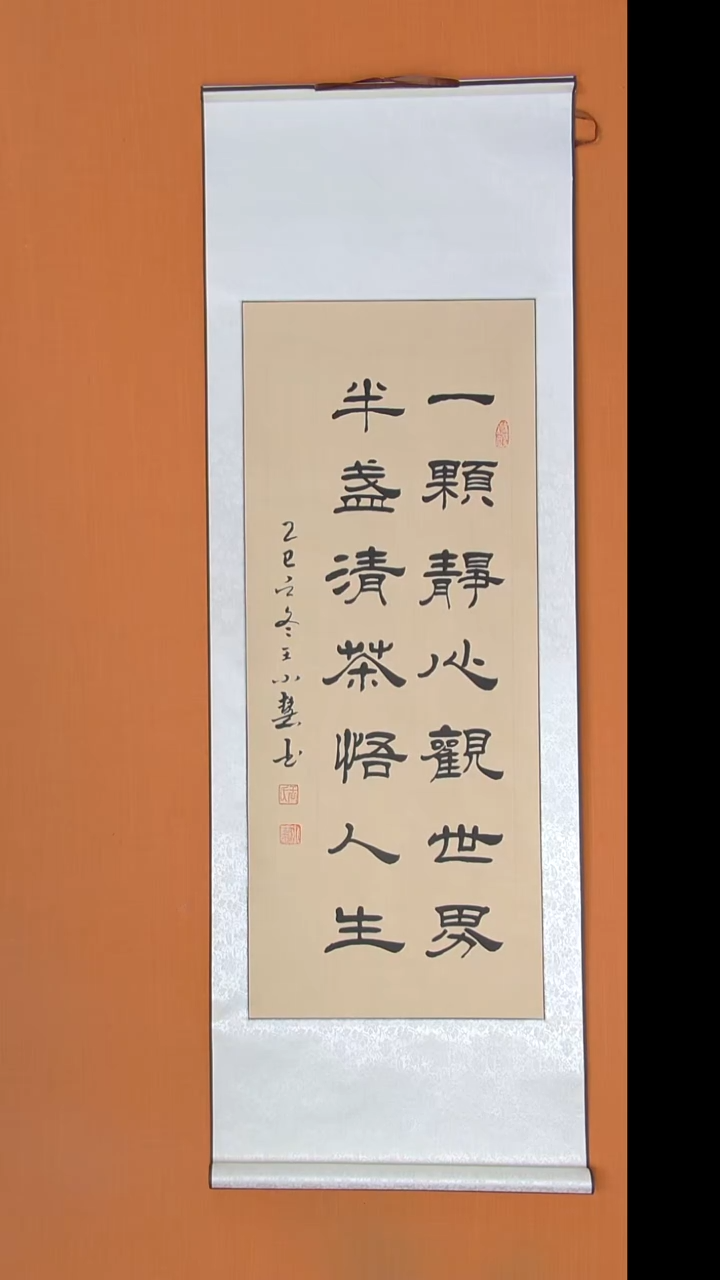 一顆靜心觀世界
半盞清茶悟人生
乙巳立冬王小慧书